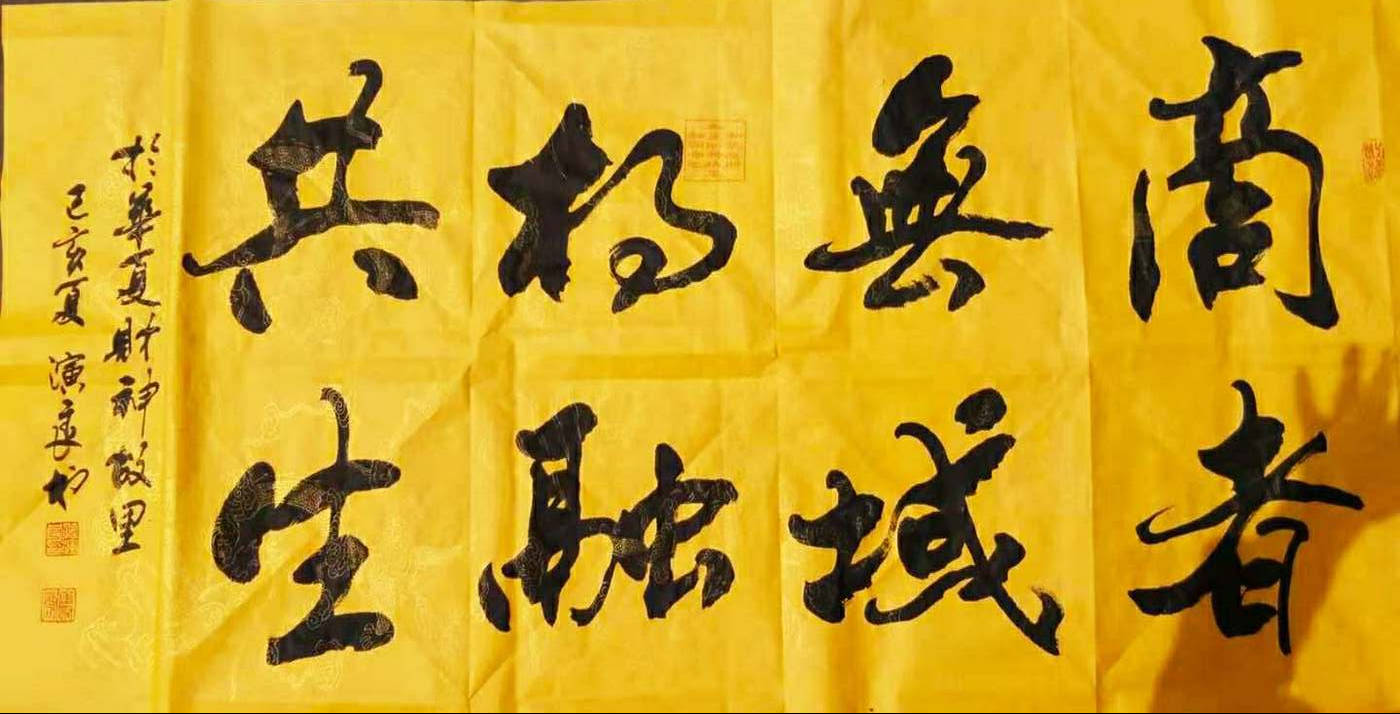 商者
無域
相融
共生
於華夏財神故里
己亥夏 演